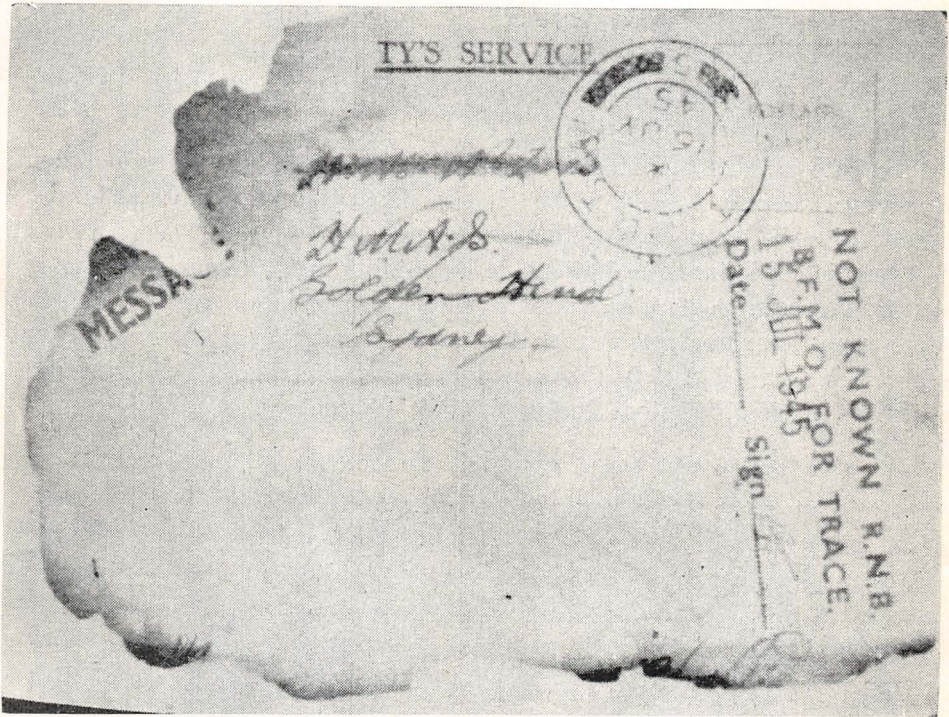 TY'S SERVICE
MESSA
H.M.A.S.
Golden Hind
Sydney.
NOT KNOWN R.N.B
B.F.M.O. FOR TRACE.
15 JUL 1945
Date Sign